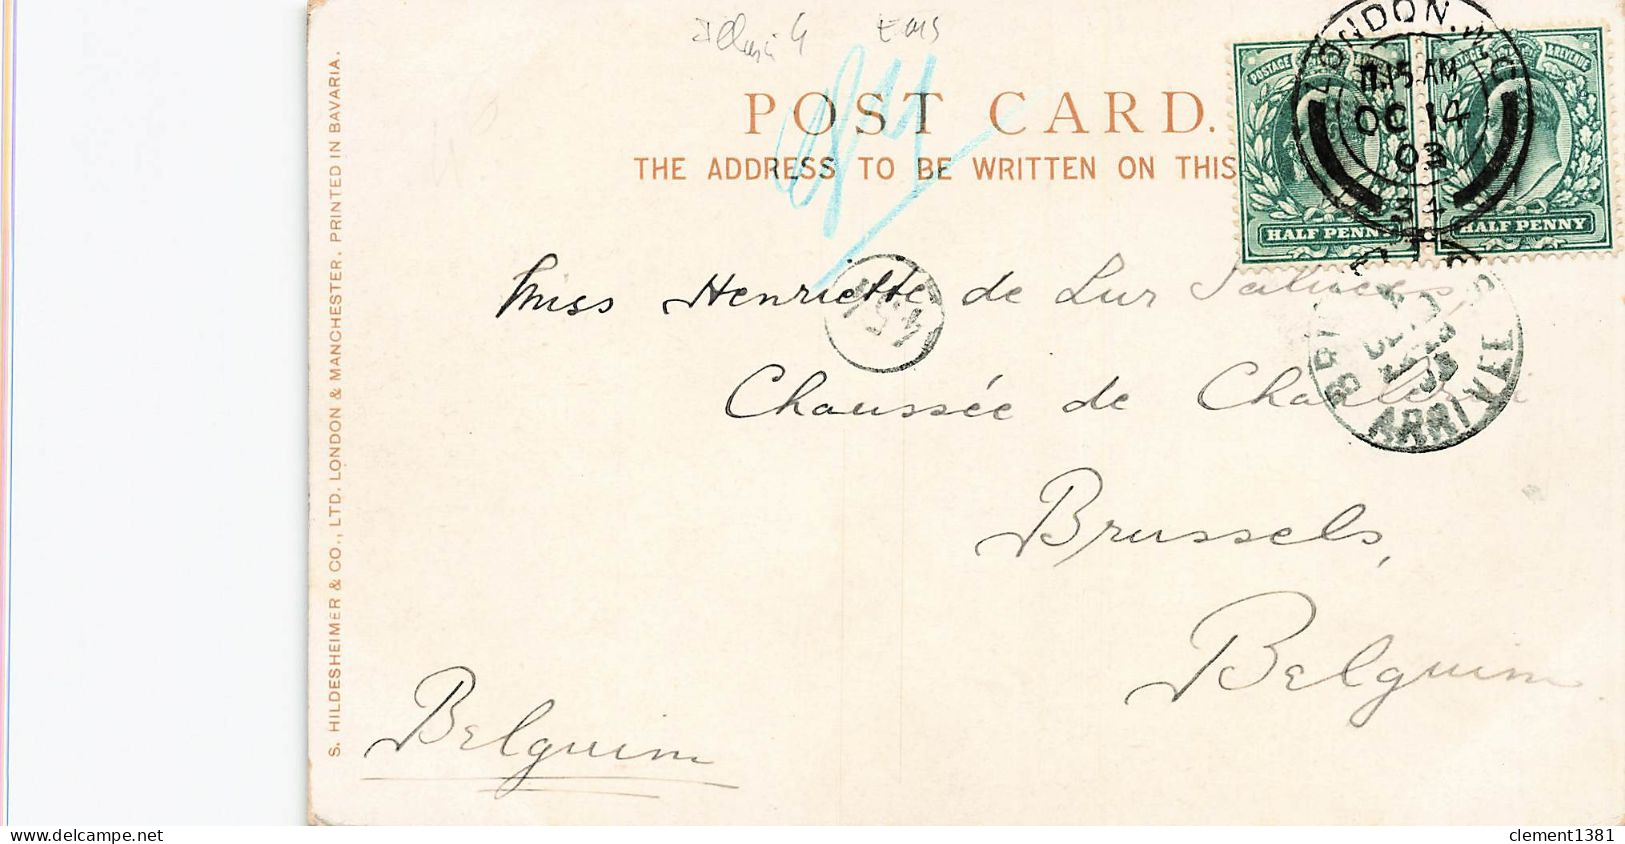 POST CARD.
THE ADDRESS TO BE WRITTEN ON THIS
POSTAGE & REVENUE
HALF PENNY
HALF PENNY
LONDON. W.C
11.15 AM
OC 14
03
34
Miss Henriette de Lur Saluces,
Chaussée de Charleroi
Brussels,
Belguim
Belguim
ARRIVEE
S. HILDESHEIMER & CO., LTD. LONDON & MANCHESTER. PRINTED IN BAVARIA.
www.delcampe.net
clement1381